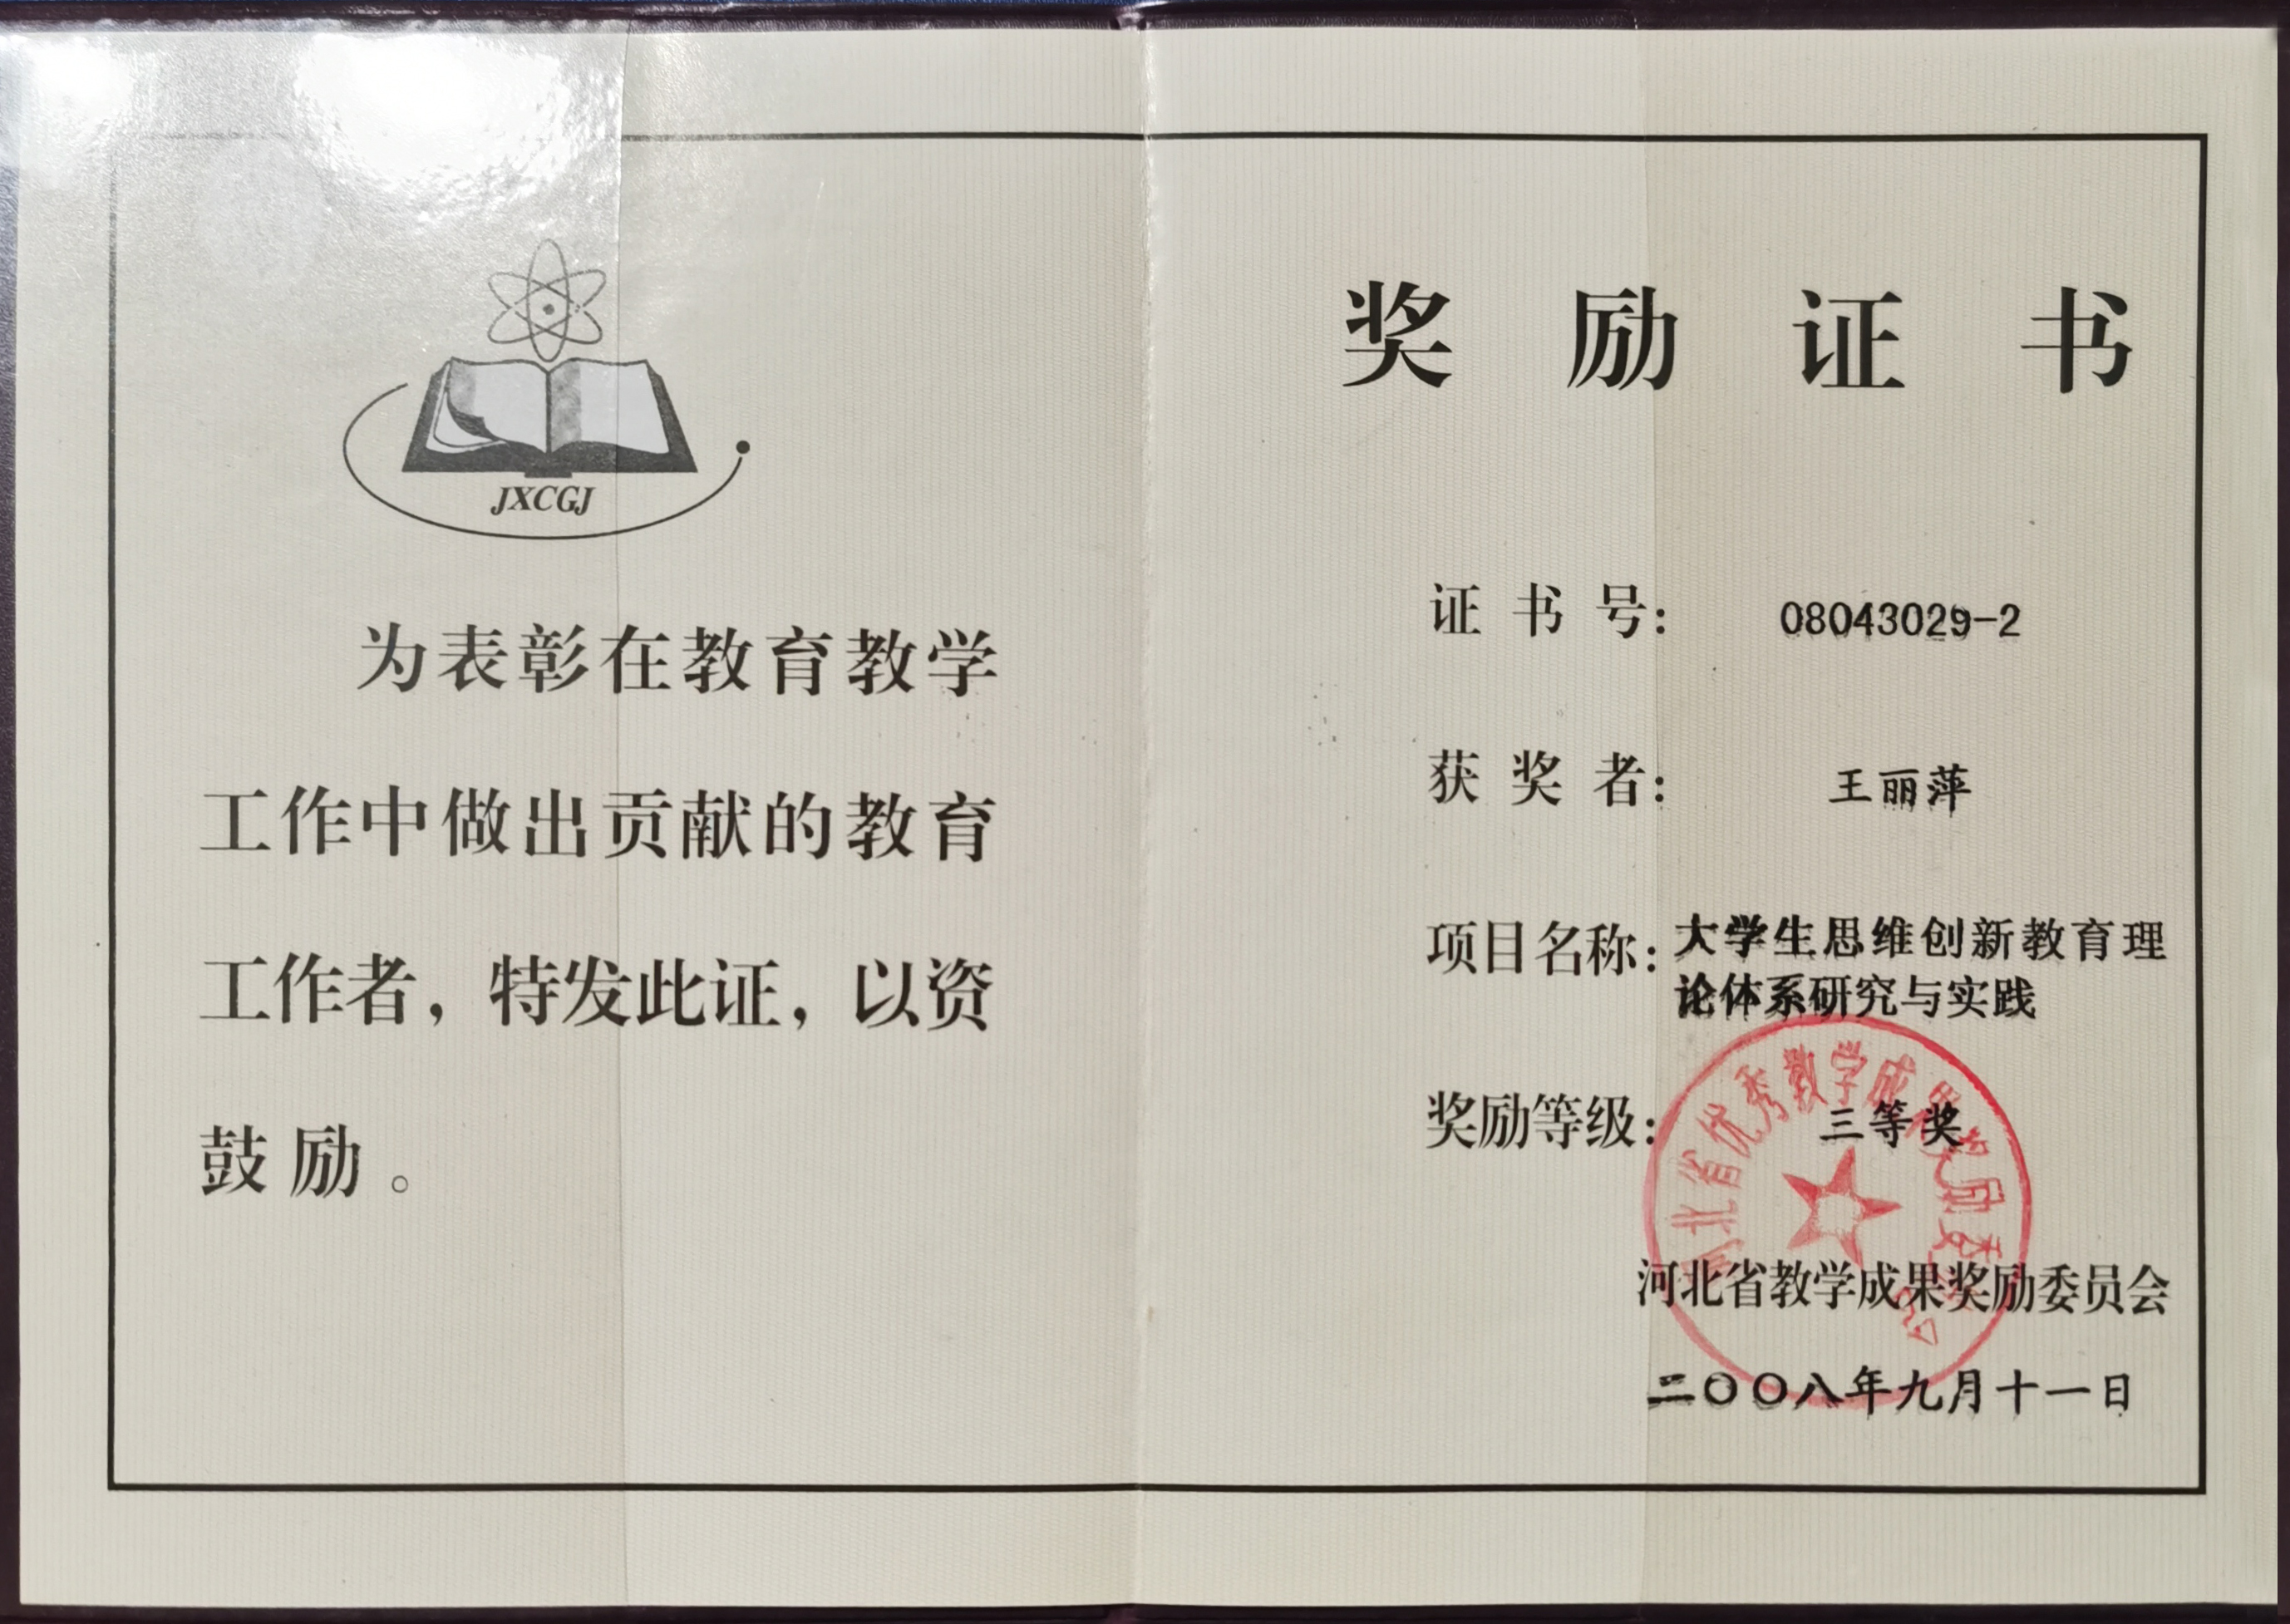 JXCGJ
为表彰在教育教学
工作中做出贡献的教育
工作者，特发此证，以资
鼓励。
奖励证书
证书号： 08043029-2
获奖者： 王丽萍
项目名称：大学生思维创新教育理
论体系研究与实践
奖励等级： 三等奖
河北省优秀教学成果奖励委员会
河北省教学成果奖励委员会
二〇〇八年九月十一日